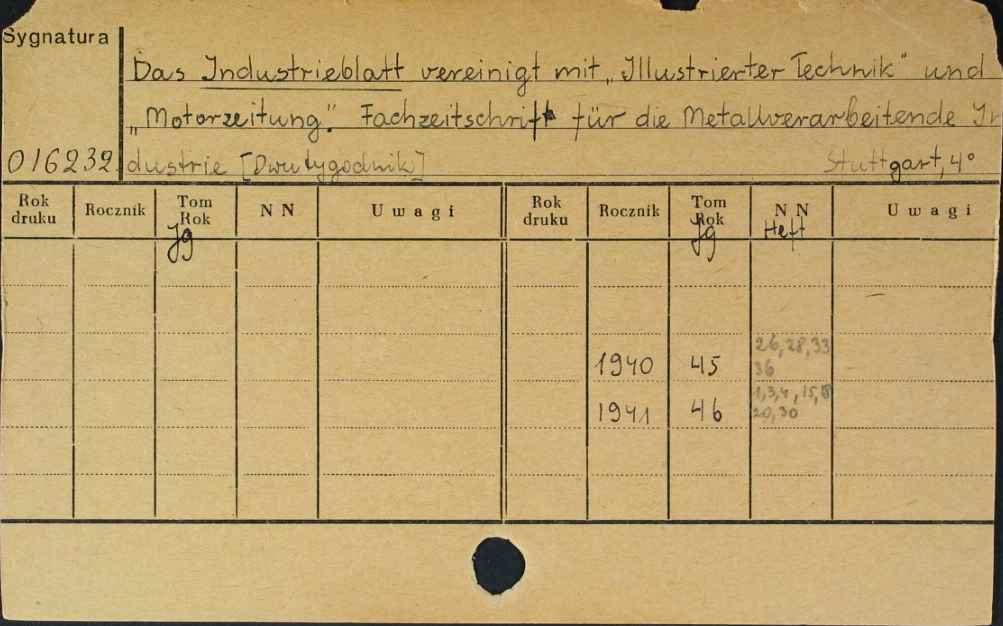 Sygnatura
Das Industrieblatt vereinigt mit „Illustrierter Technik" und
„Motorzeitung." Fachzeitschrift für die Metallverarbeitende In
016232 dustrie [Dwutygodnik] Stuttgart, 4°
Rok druku Rocznik Tom Rok N N Uwagi Rok druku Rocznik Tom Rok N N Uwagi
Jg Jg Heft
26, 28, 33
1940 45 36
1, 3, 4, 15, 18
1941 46 20, 30